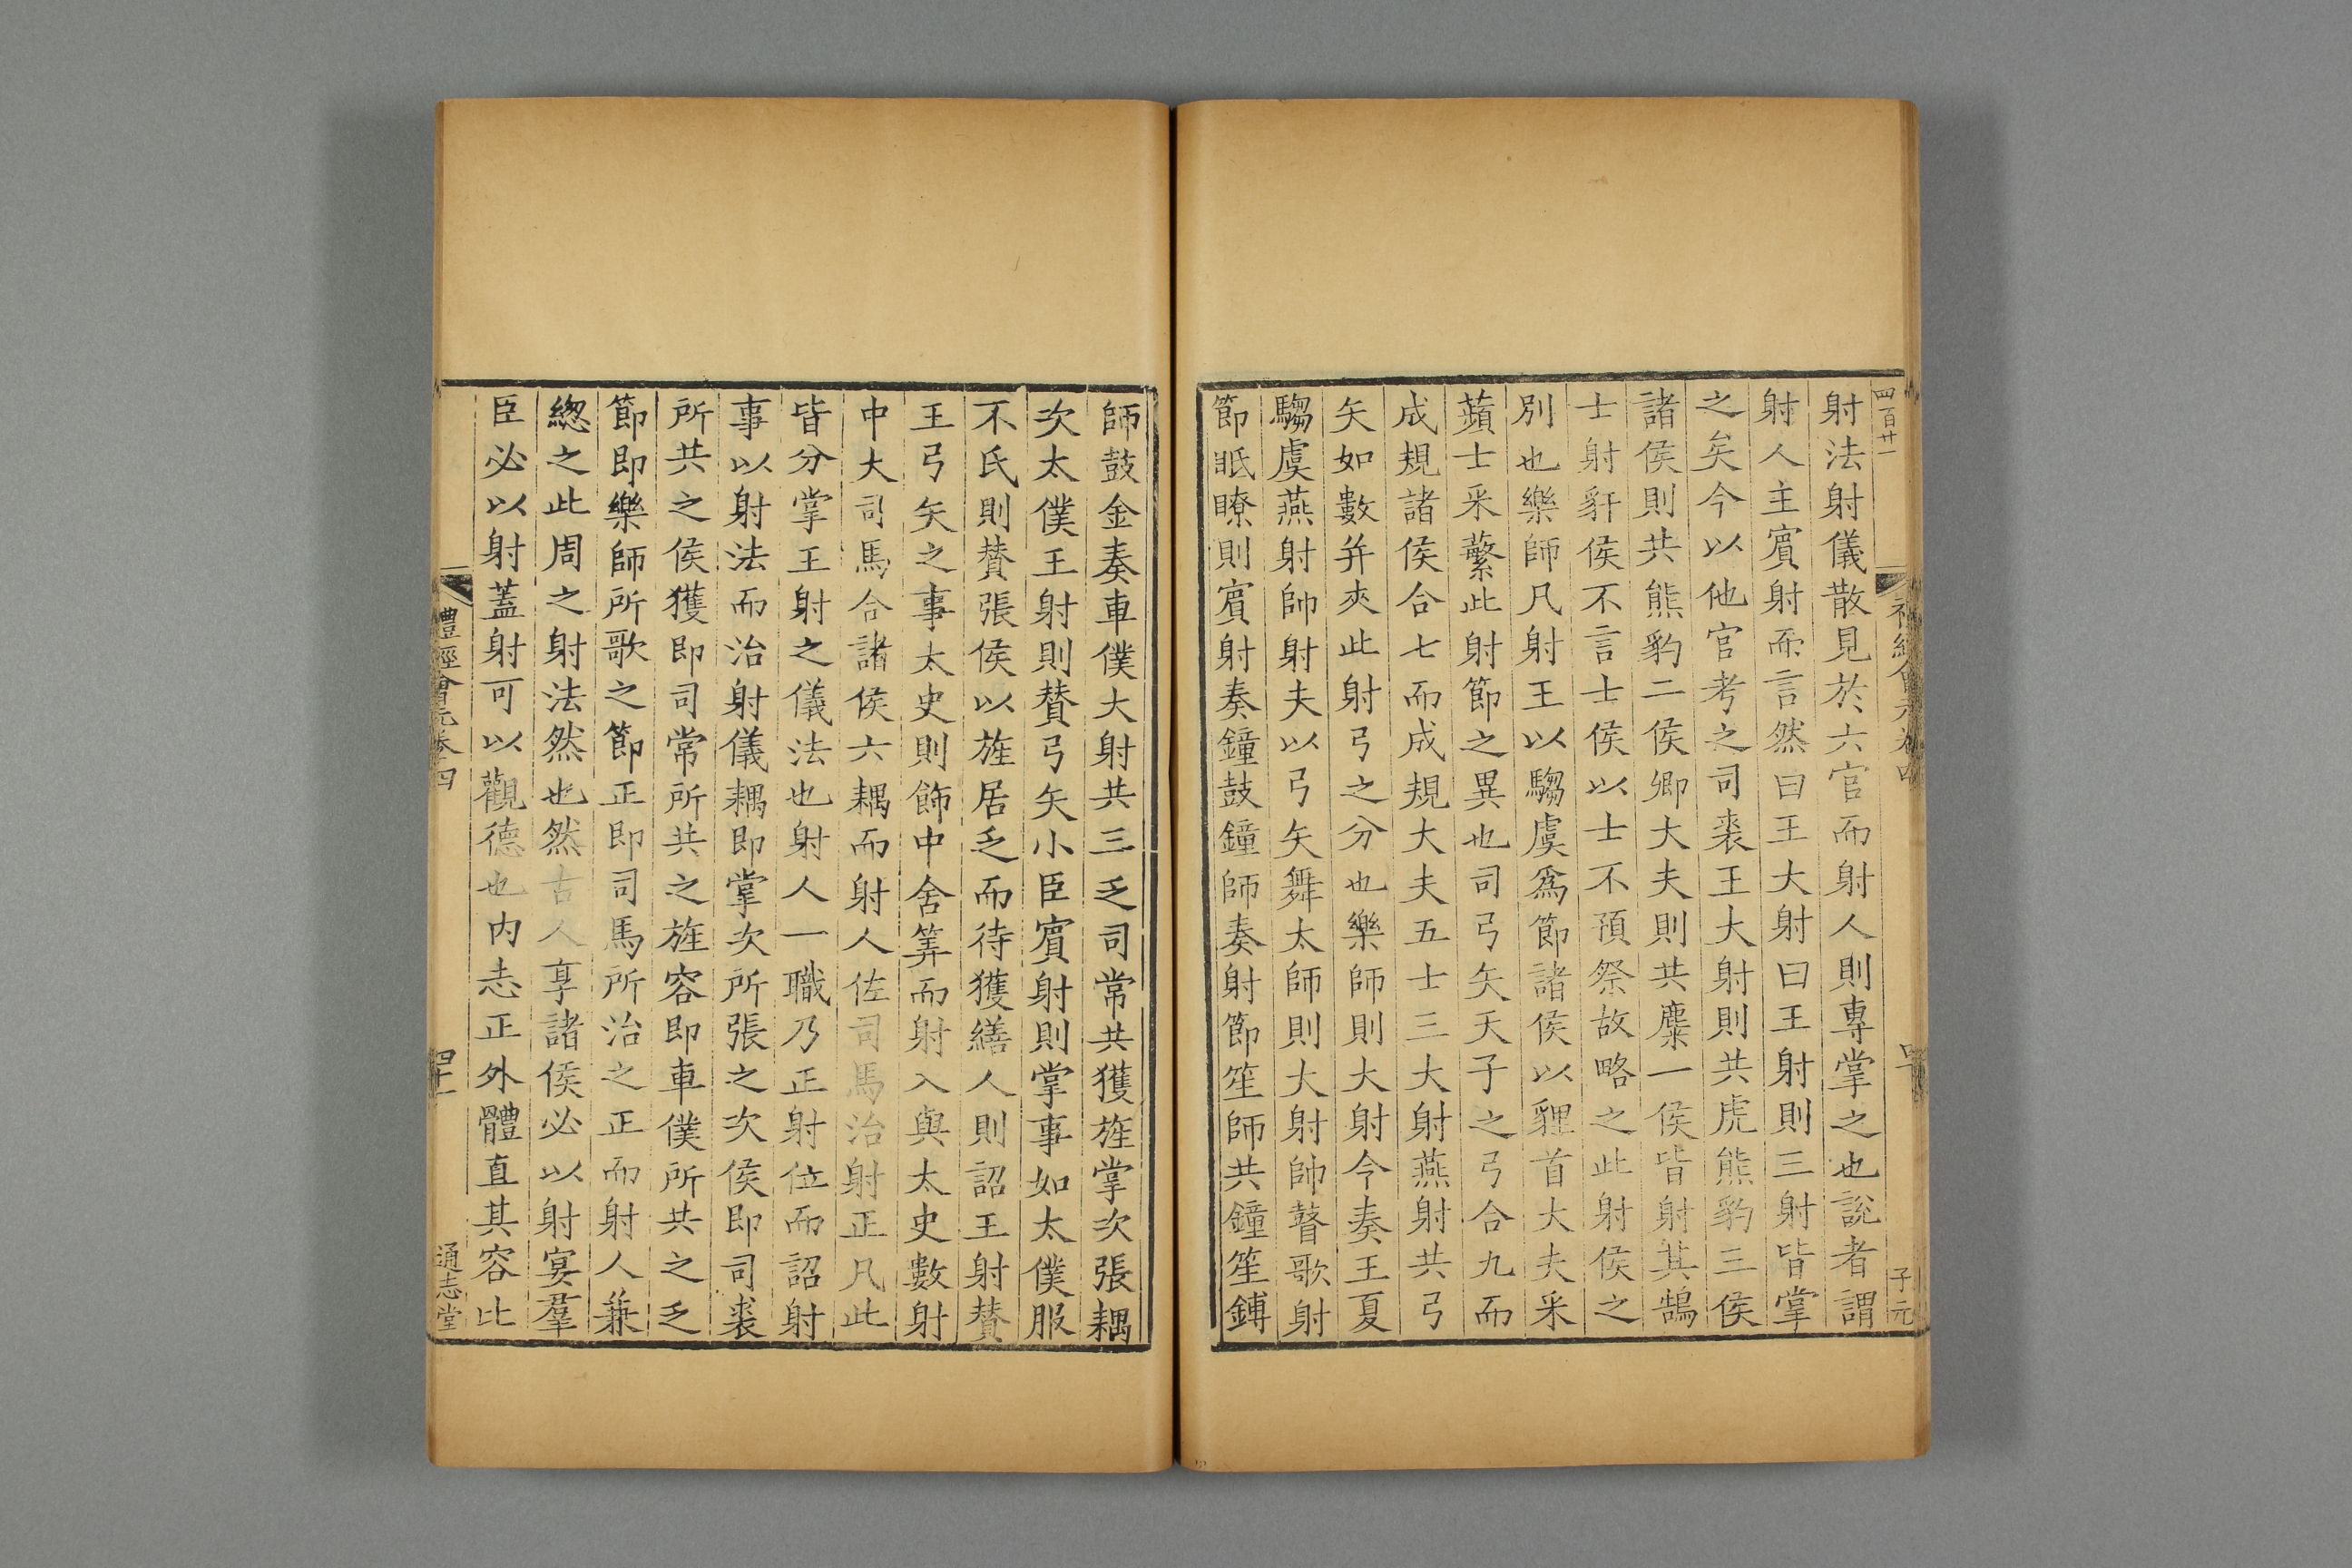 四百廿一
射法射儀散見於六官而射人則專掌之也說者謂
射人主賓射而言然曰王大射曰王射則三射皆掌
之矣今以他官考之司裘王大射則共虎熊豹三侯
諸侯則共熊豹二侯卿大夫則共麋一侯皆射其鵠
士射豻侯不言士侯以士不預祭故略之此射侯之
別也樂師凡射王以騶虞爲節諸侯以貍首大夫采
蘋士采蘩此射節之異也司弓矢天子之弓合九而
成規諸侯合七而成規大夫五士三大射燕射共弓
矢如數并夾此射弓之分也樂師則大射令奏王夏
騶虞燕射帥射夫以弓矢舞太師則大射帥瞽歌射
節眡瞭則賓射奏鐘鼓鐘師奏射節笙師共鐘笙鎛
子元
師鼓金奏車僕大射共三乏司常共獲旌掌次張耦
次太僕王射則賛弓矢小臣賓射則掌事如太僕服
不氏則賛張侯以旌居乏而待獲繕人則詔王射賛
王弓矢之事太史則飾中舍筭而射入與太史數射
中大司馬合諸侯六耦而射人佐司馬治射正凡此
皆分掌王射之儀法也射人一職乃正射位而詔射
事以射法而治射儀耦即掌次所張之次侯即司裘
所共之侯獲即司常所共之旌容即車僕所共之乏
節即樂師所歌之節正即司馬所治之正而射人兼
緫之此周之射法然也然古人享諸侯必以射宴羣
臣必以射蓋射可以觀德也内志正外體直其容比
禮經會元卷四
通志堂